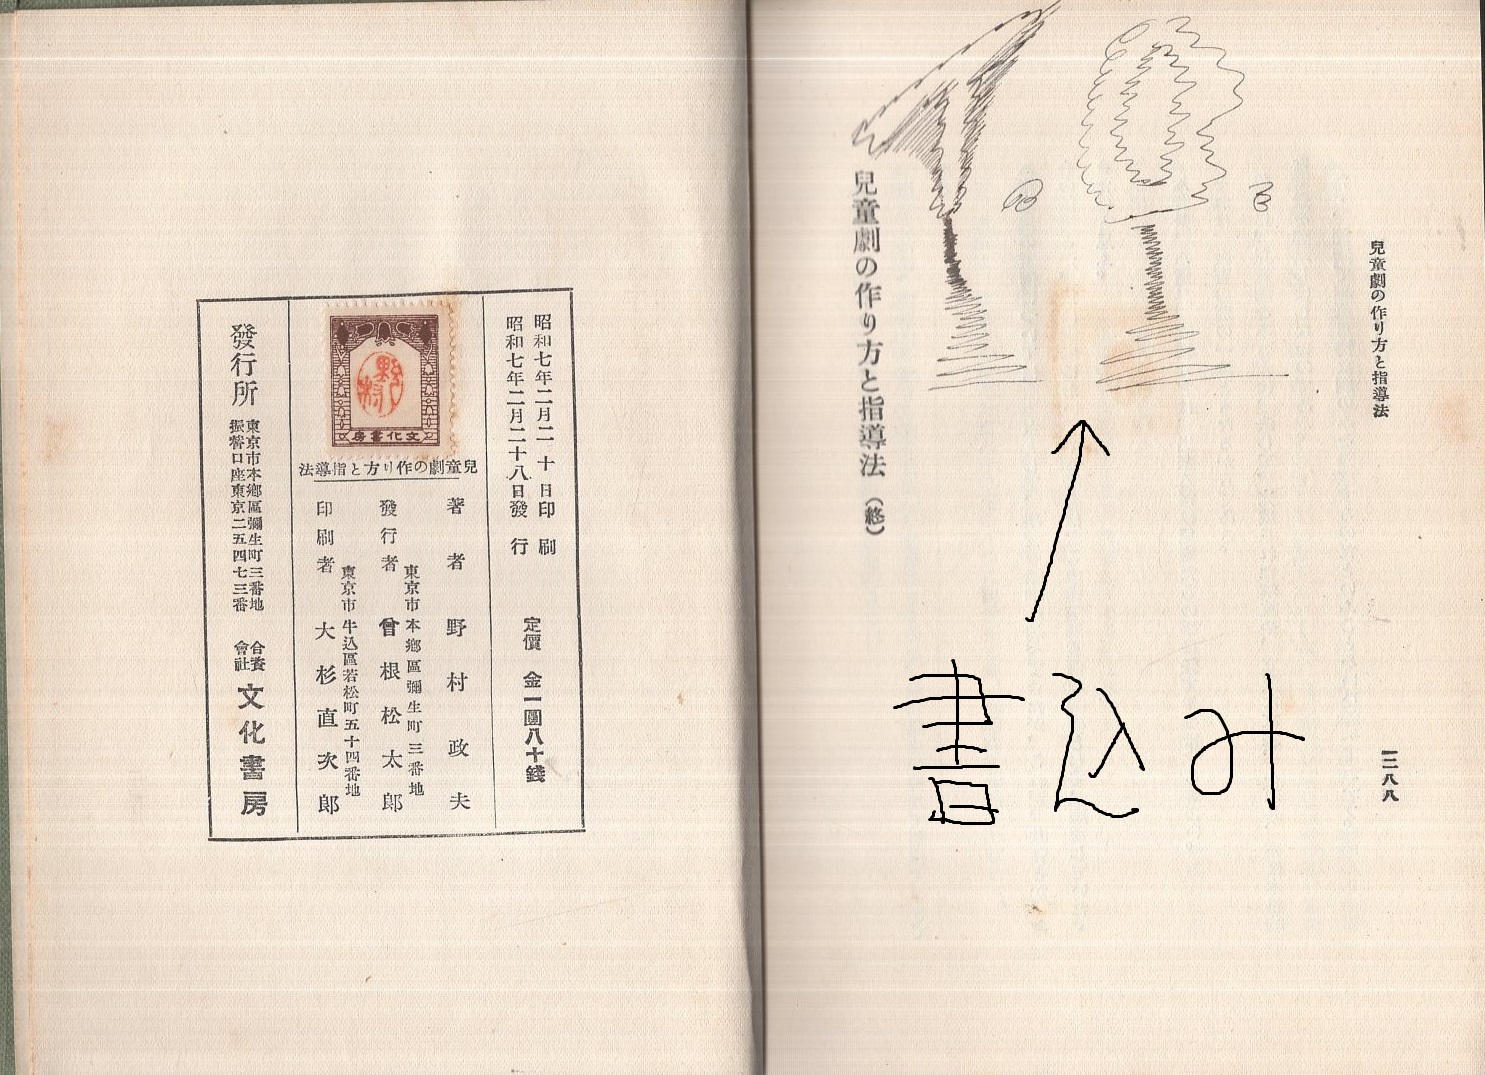 兒童劇の作り方と指導法
二八八
兒童劇の作り方と指導法(終)
書込み
昭和七年二月二十日印刷
昭和七年二月二十八日發行
定價 金一圓八十錢
野村
房書化文
法導指と方り作の劇童兒
著者 野村政夫
東京市本鄕區彌生町三番地
發行者 曾根松太郎
東京市牛込區若松町五十四番地
印刷者 大杉直次郎
發行所
東京市本鄕區彌生町三番地
振替口座東京二五四七三番
合資會社 文化書房